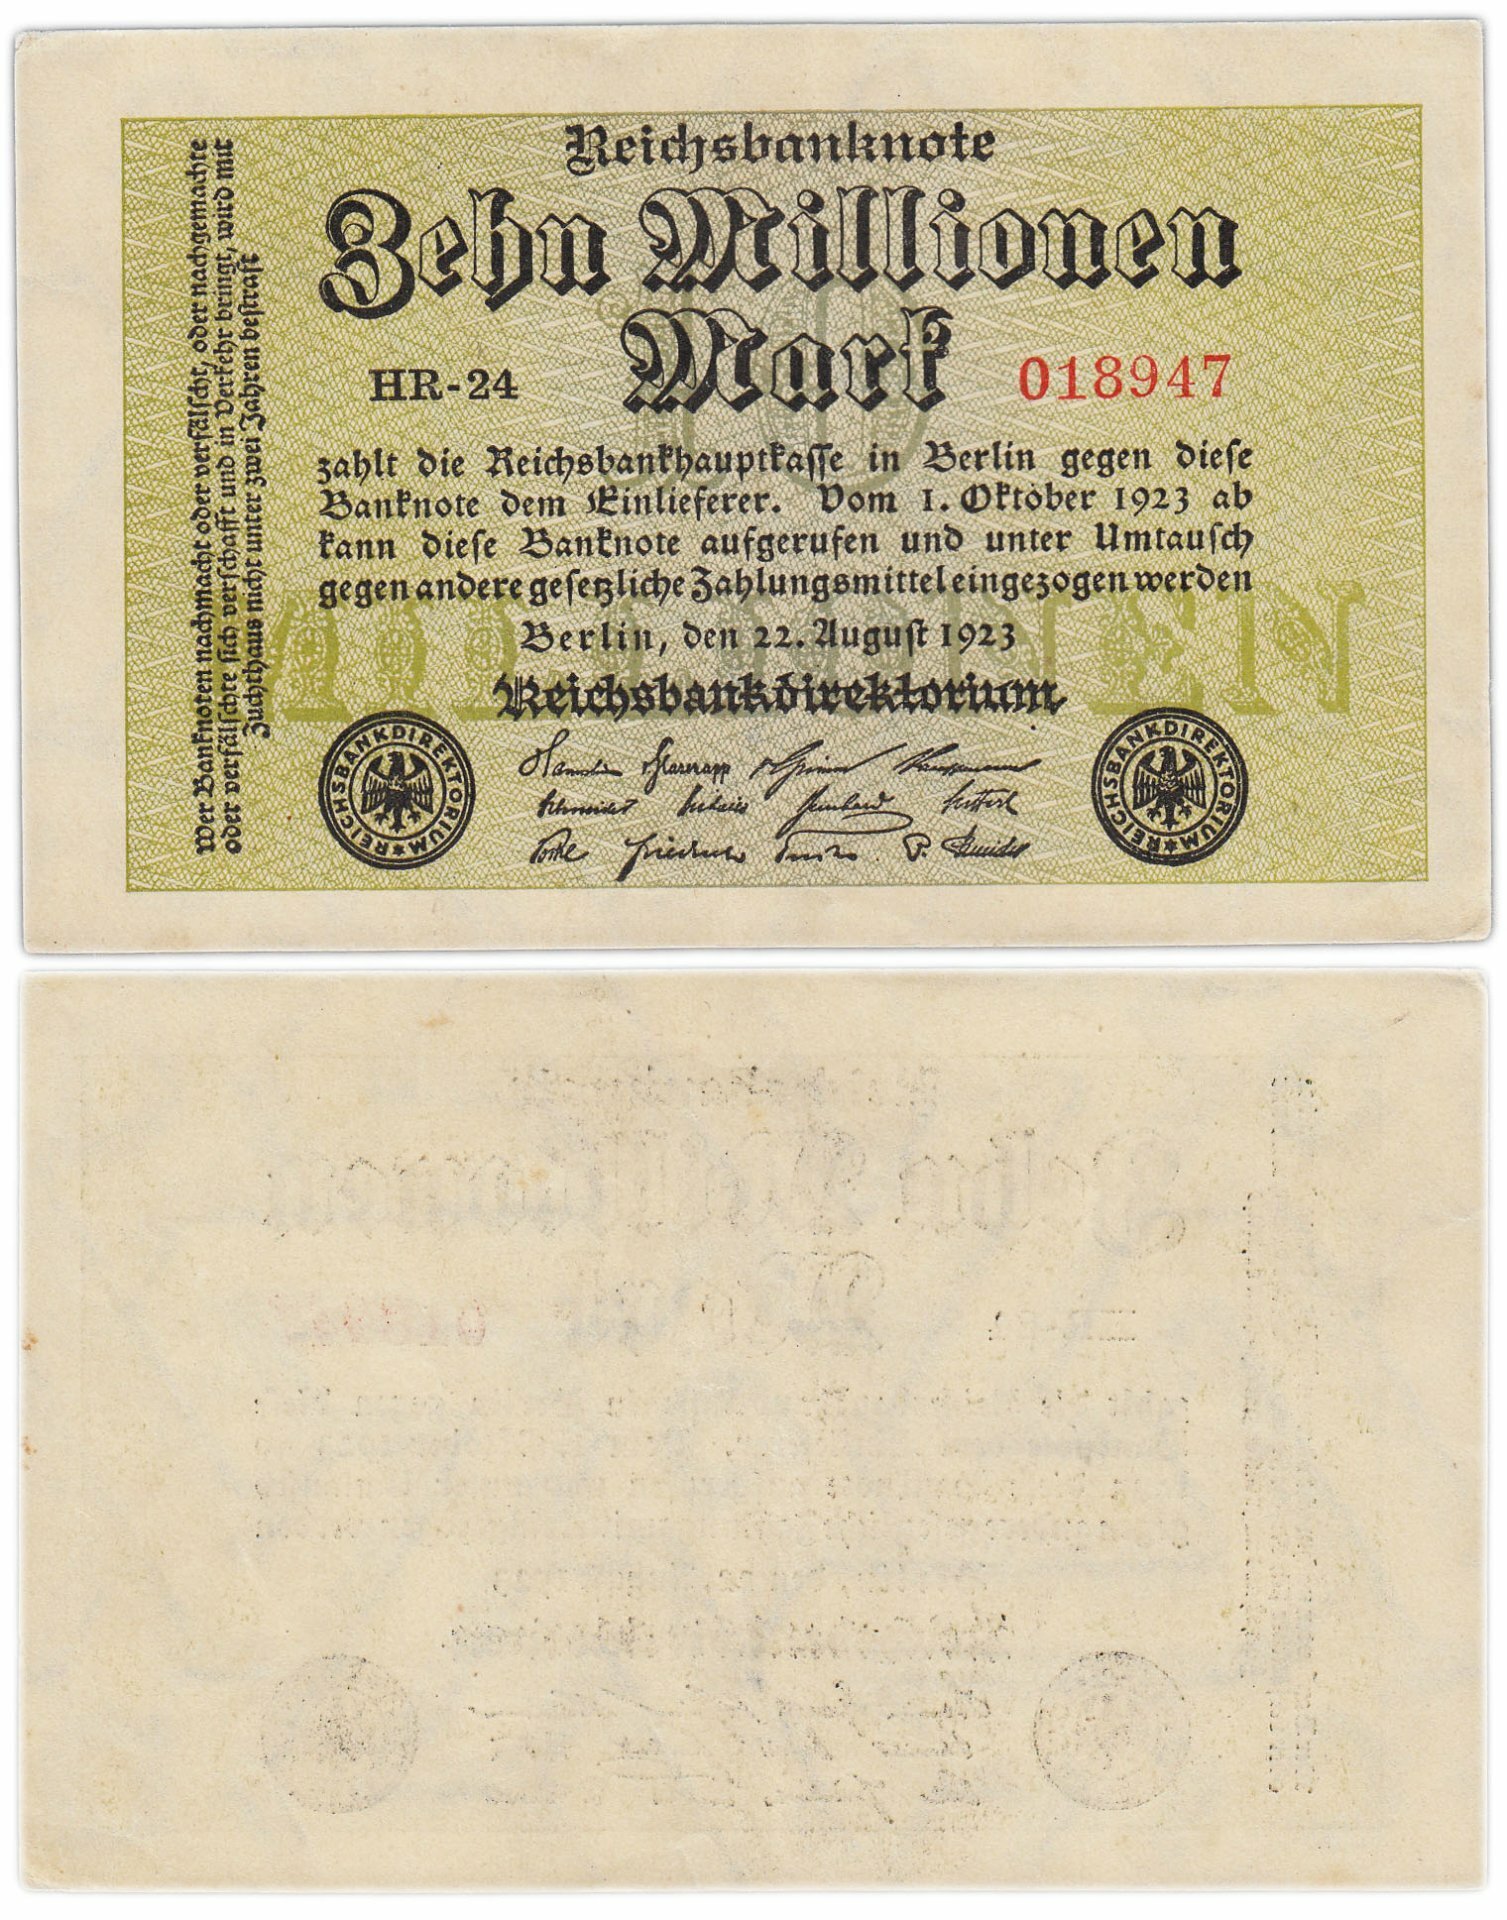 Reichsbanknote
Zehn Millionen
Mark
HR-24
018947
zahlt die Reichsbankhauptkasse in Berlin gegen diese
Banknote dem Einlieferer. Vom 1. Oktober 1923 ab
kann diese Banknote aufgerufen und unter Umtausch
gegen andere gesetzliche Zahlungsmittel eingezogen werden
Berlin, den 22. August 1923
Reichsbankdirektorium
REICHSBANKDIREKTORIUM
REICHSBANKDIREKTORIUM
Wer Banknoten nachmacht oder verfälscht, oder nachgemachte
oder verfälschte sich verschafft und in Verkehr bringt, wird mit
Zuchthaus nicht unter zwei Jahren bestraft
10
MILLIONEN